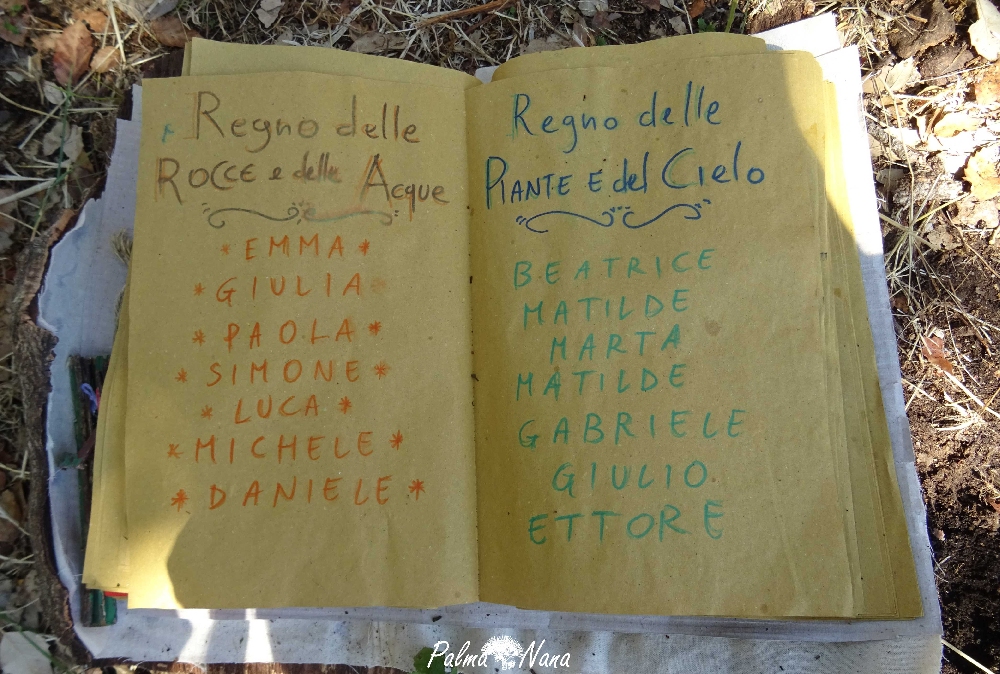 Regno delle
ROCCE e delle Acque
* EMMA *
* GIULIA *
* PAOLA *
* SIMONE *
* LUCA *
* MICHELE *
* DANIELE *
Regno delle
PIANTE E del Cielo
BEATRICE
MATILDE
MARTA
MATILDE
GABRIELE
GIULIO
ETTORE
Palma Nana